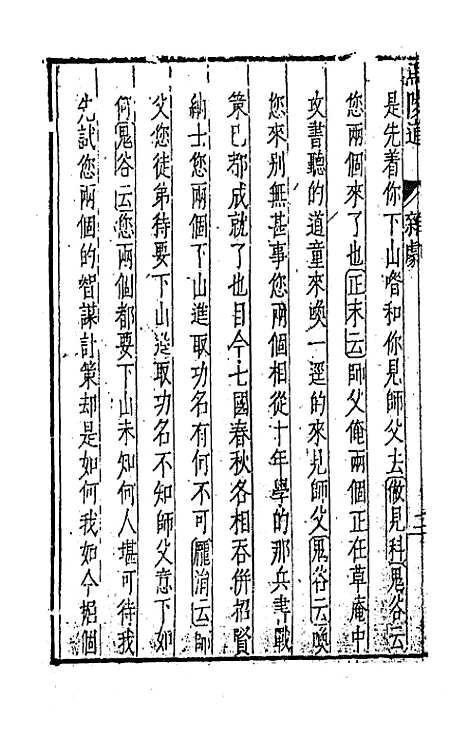 馬陵道 雜劇 二
是先着你下山喒和你見師父去做見科鬼谷云
您兩個來了也正末云師父俺兩個正在草庵中
攻書聽的道童來喚一逕的來見師父鬼谷云喚
您來别無甚事您兩個相從十年學的那兵書戰
策已都成就了也目今七國春秋各相吞併招賢
納士您兩個下山進取功名有何不可龐涓云師
父您徒弟待要下山進取功名不知師父意下如
何鬼谷云您兩個都要下山未知何人堪可待我
先試您兩個的智謀計策却是如何我如今掘個